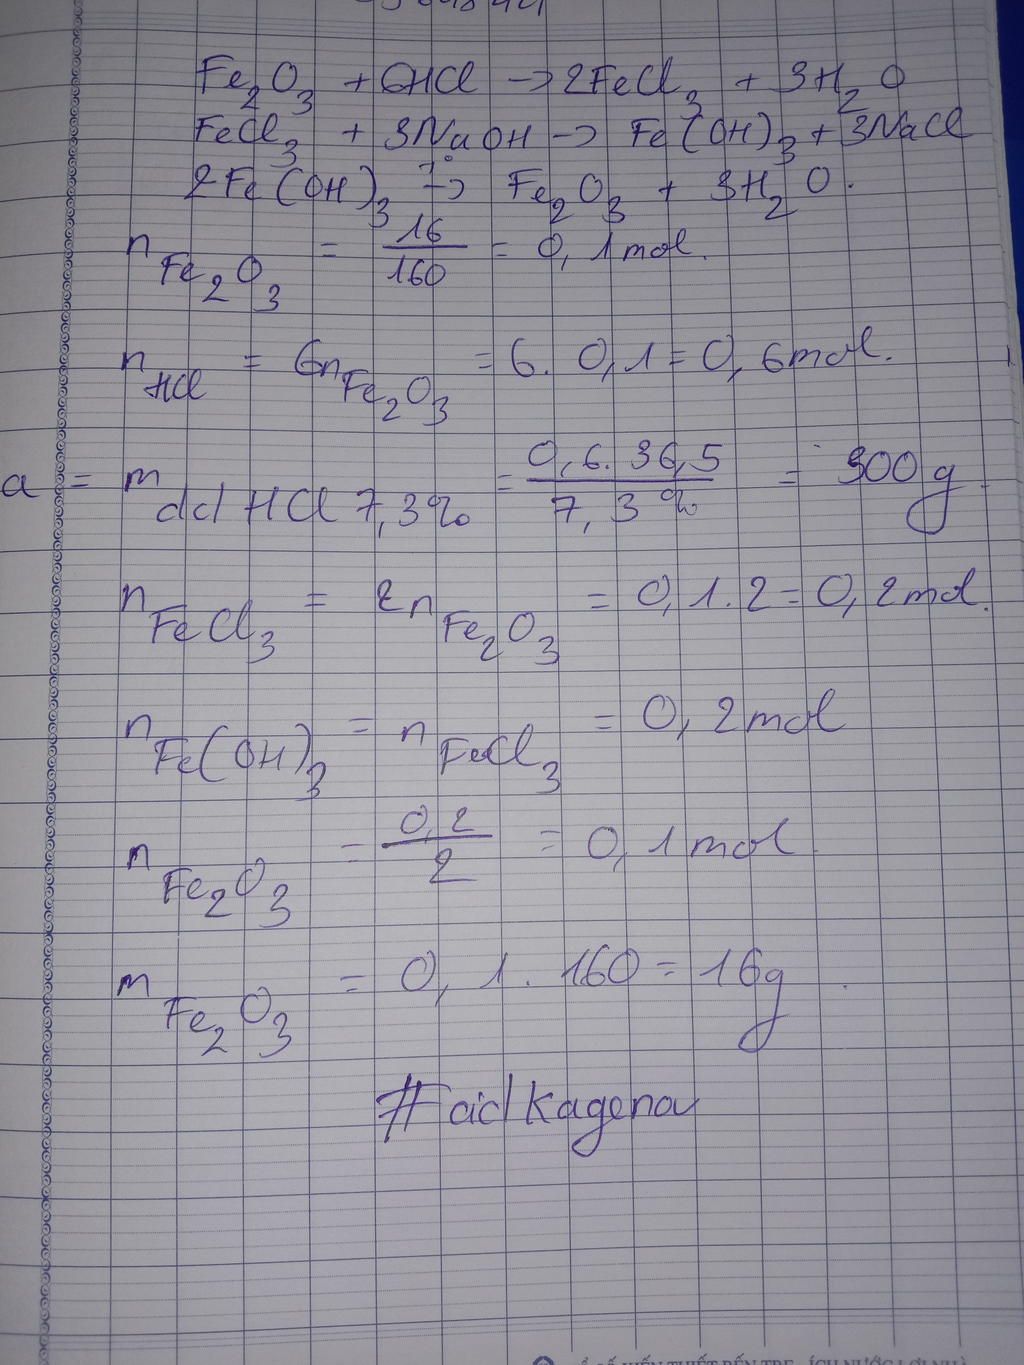 Fe2O3 + 6HCl -> 2FeCl3 + 3H2O
FeCl3 + 3NaOH -> Fe(OH)3 + 3NaCl
2Fe(OH)3 -t°-> Fe2O3 + 3H2O.
nFe2O3 = 16/160 = 0,1mol.
nHCl = 6nFe2O3 = 6. 0,1 = 0,6mol.
a = mdd HCl 7,3% = 0,6. 36,5 / 7,3% = 300g.
nFeCl3 = 2nFe2O3 = 0,1.2 = 0,2mol.
nFe(OH)3 = nFeCl3 = 0,2mol
nFe2O3 = 0,2/2 = 0,1mol
mFe2O3 = 0,1. 160 = 16g.